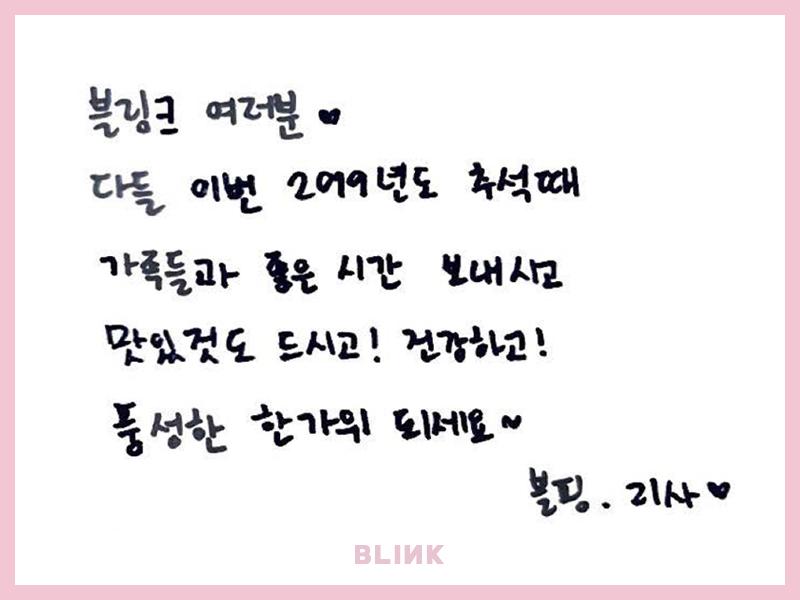 블링크 여러분 ♥
다들 이번 2019년도 추석때
가족들과 좋은 시간 보내시고
맛있것도 드시고! 건강하고!
풍성한 한가위 되세요~
블핑. 리사 ♥
BLINK